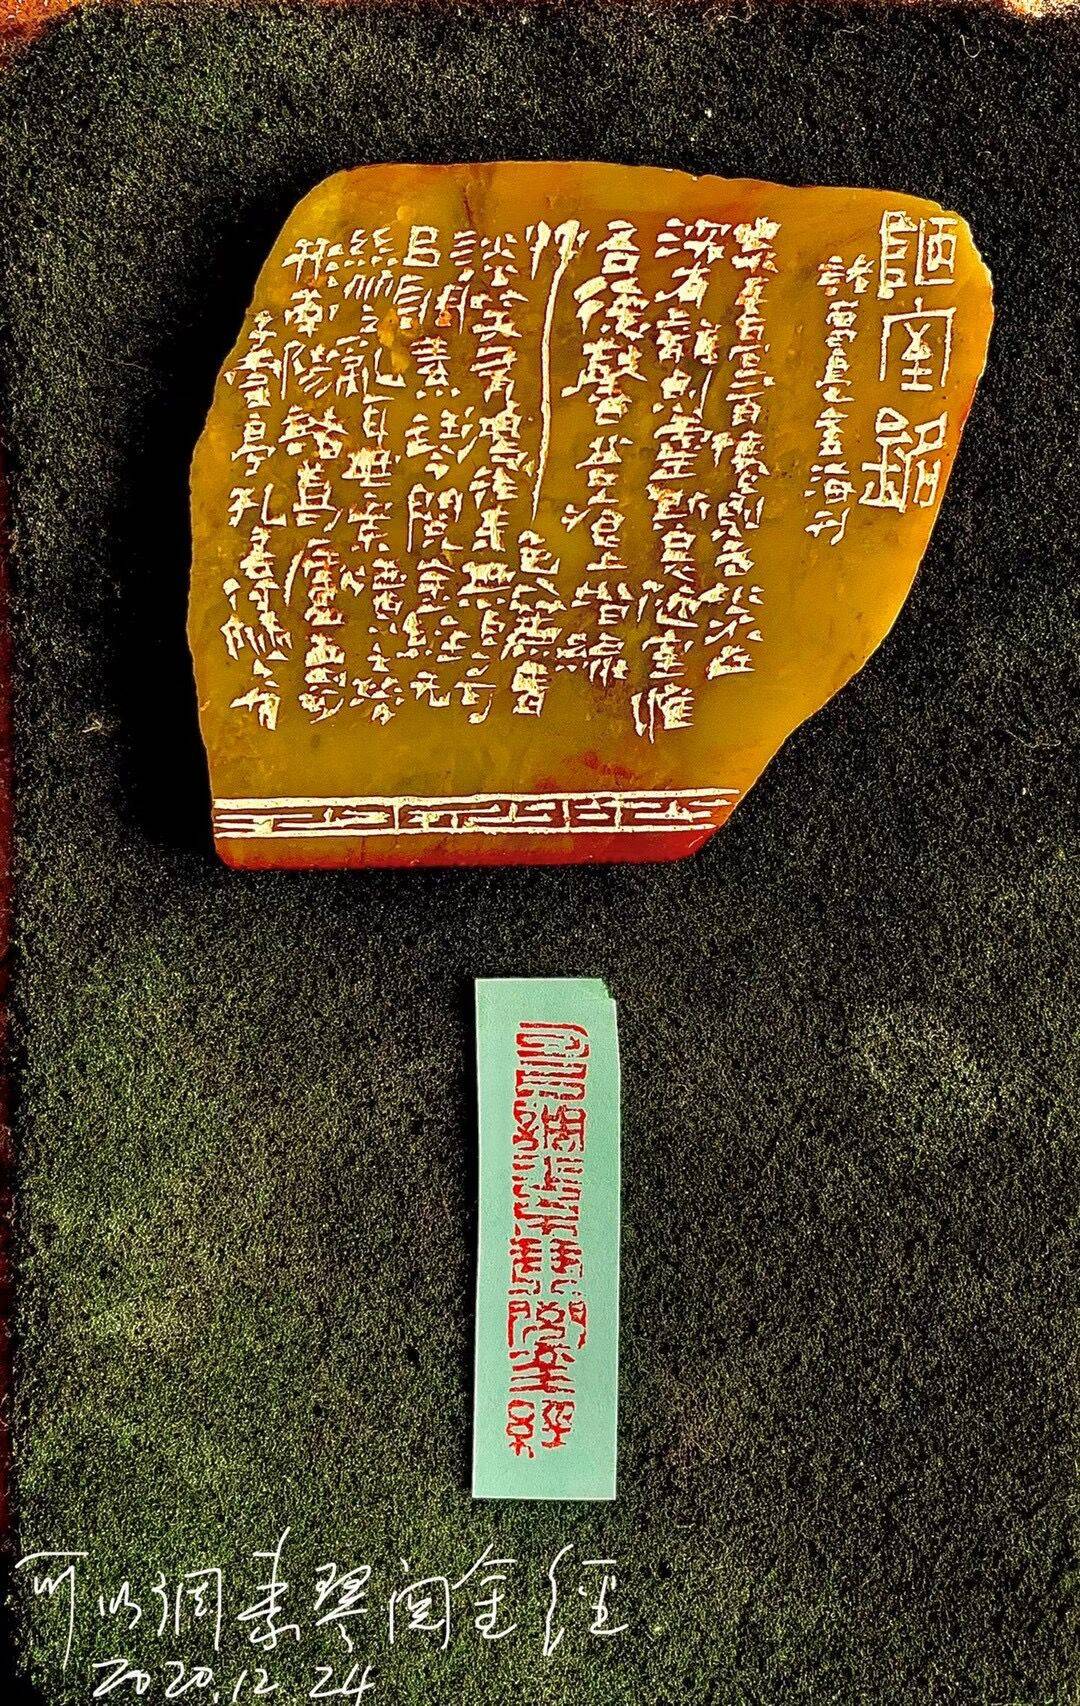 陋室銘
深有龍則靈斯是陋室惟
吾德馨苔痕上階綠
草色入簾青
談笑有鴻儒往來無白丁可
以調素琴閱金經無
絲竹之亂耳無案牘之勞
形南陽諸葛廬西蜀
子雲亭孔子云何陋之有
可以調素琴閱金經
可以调素琴阅金經
2020.12.24